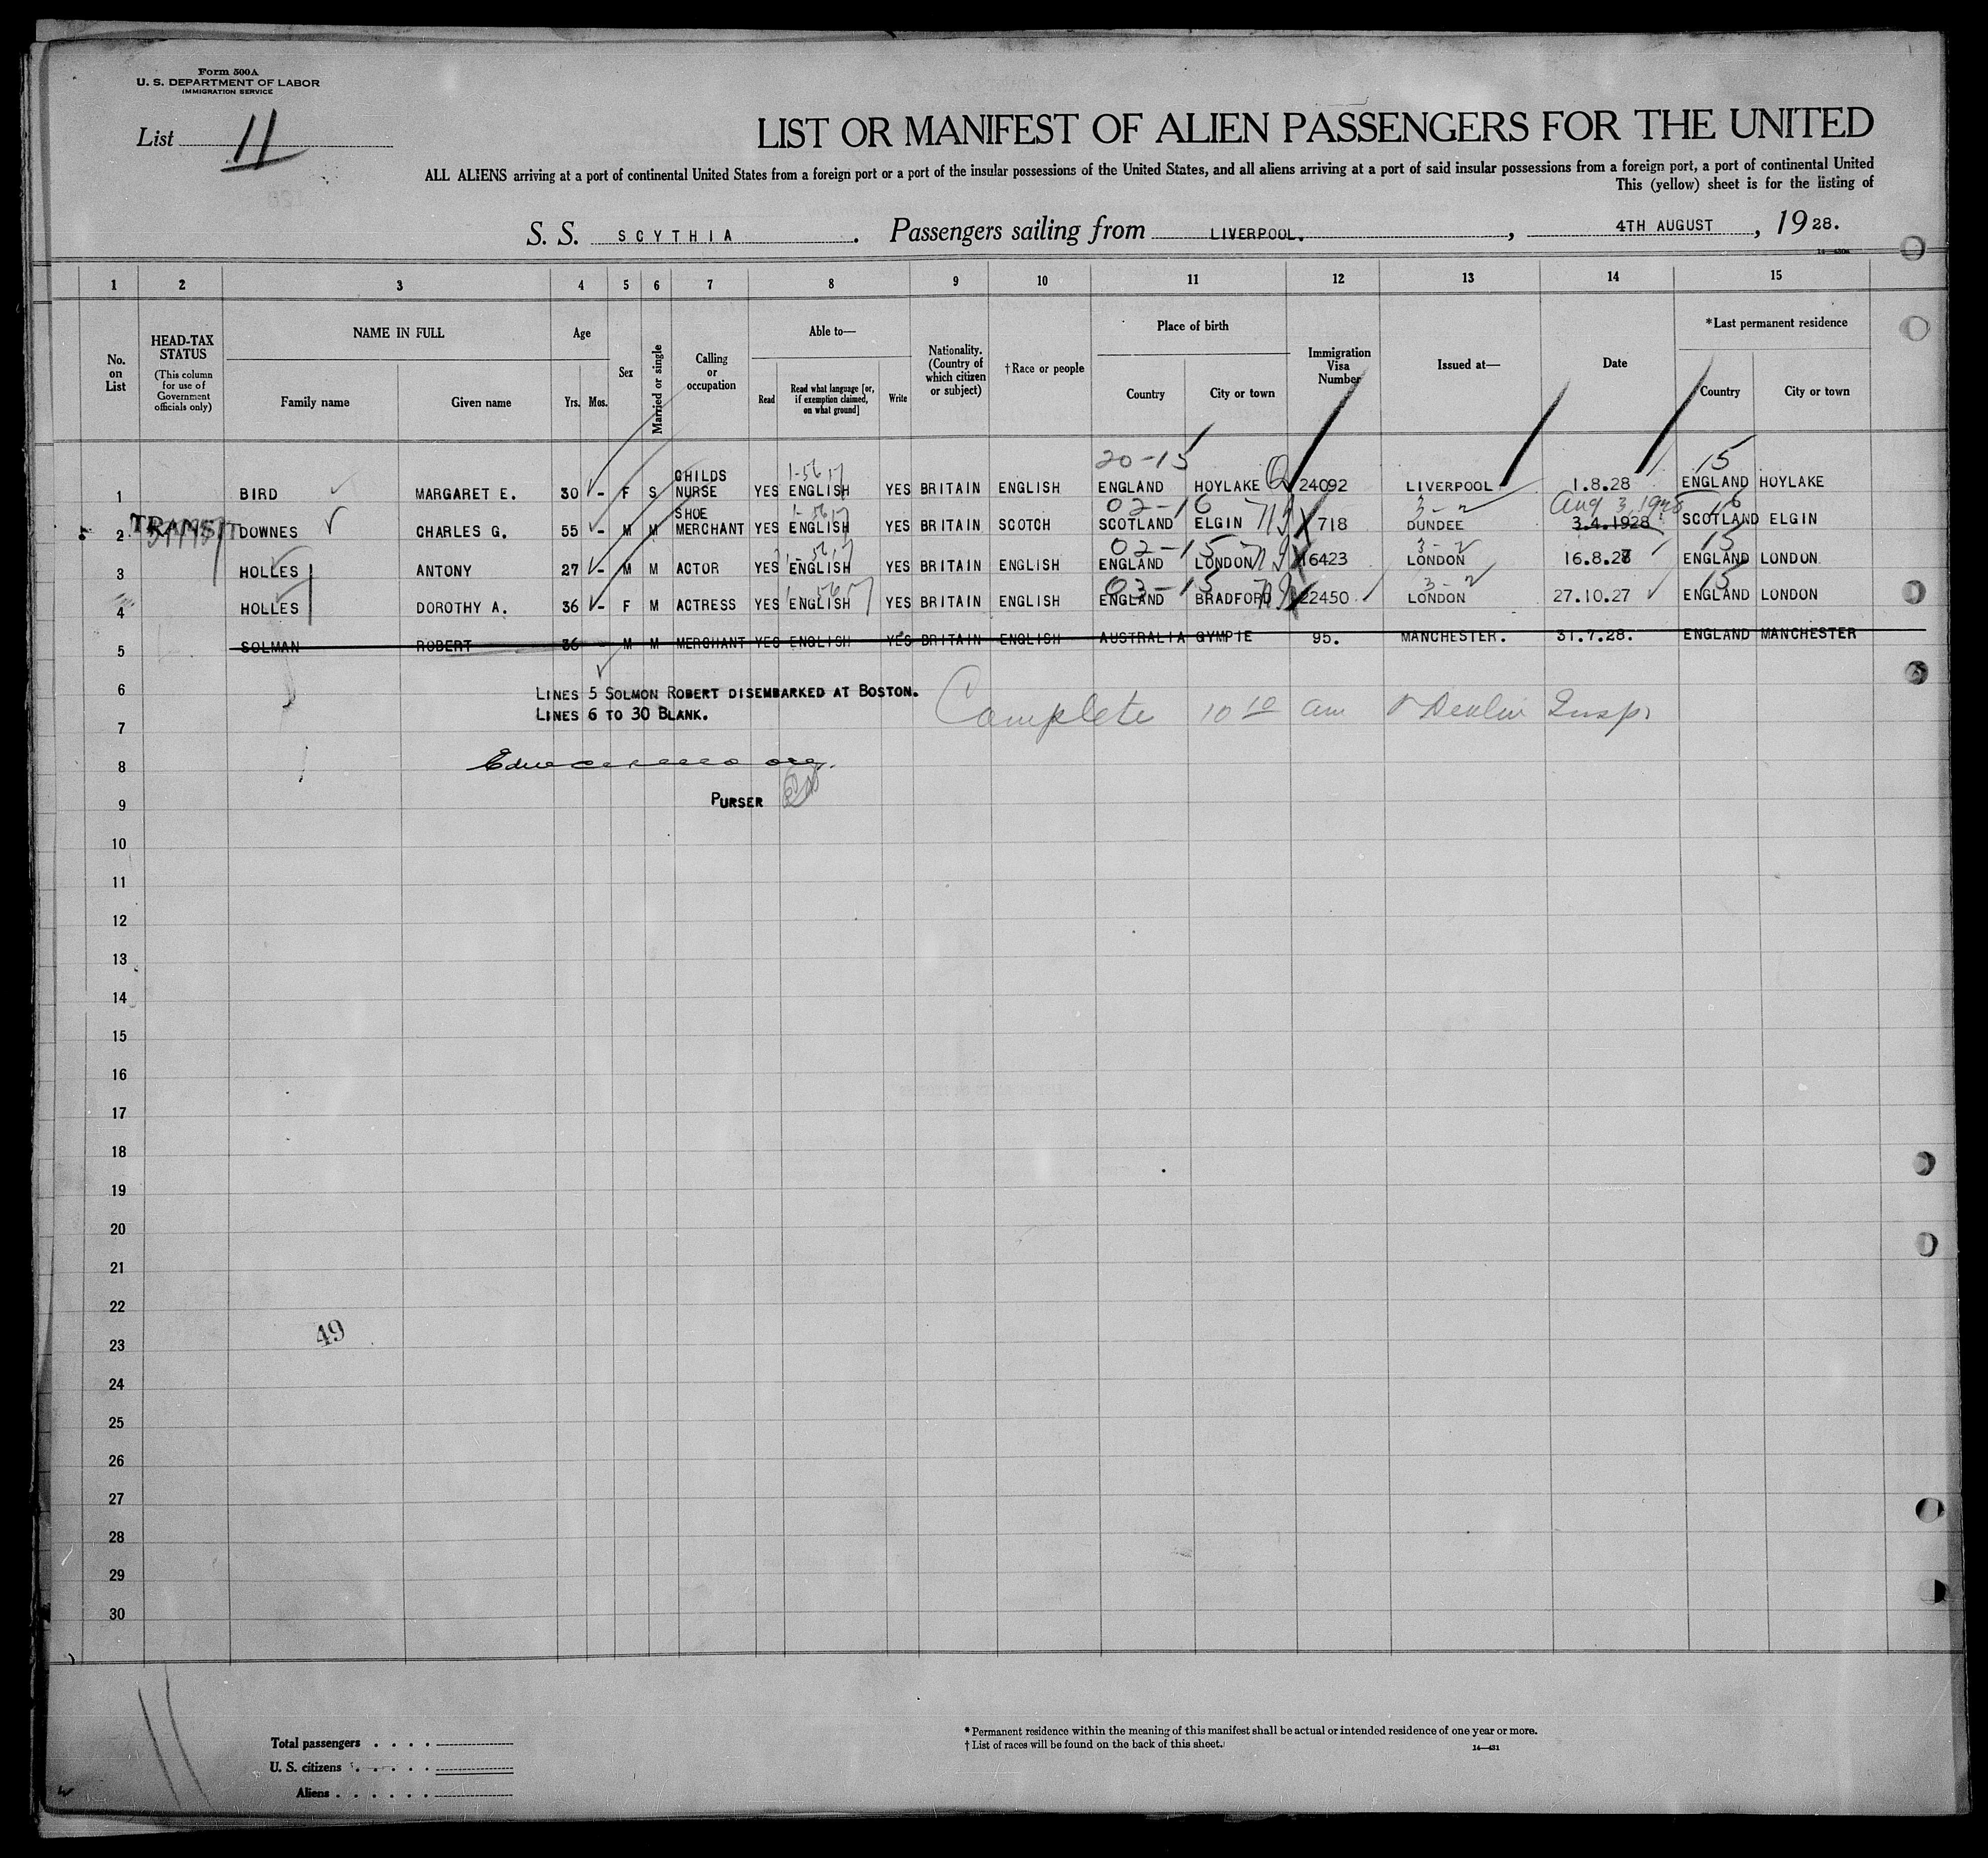 Form 500A
U. S. DEPARTMENT OF LABOR
IMMIGRATION SERVICE
List 11
LIST OR MANIFEST OF ALIEN PASSENGERS FOR THE UNITED
ALL ALIENS arriving at a port of continental United States from a foreign port or a port of the insular possessions of the United States, and all aliens arriving at a port of said insular possessions from a foreign port, a port of continental United
This (yellow) sheet is for the listing of
S. S. SCYTHIA. Passengers sailing from LIVERPOOL., 4TH AUGUST, 1928.
1 2 3 4 5 6 7 8 9 10 11 12 13 14 15
No. on List
HEAD-TAX STATUS
(This column for use of Government officials only)
NAME IN FULL
Family name
Given name
Age
Yrs. Mos.
Sex
Married or single
Calling or occupation
Able to—
Read
Read what language [or, if exemption claimed, on what ground]
Write
Nationality. (Country of which citizen or subject)
† Race or people
Place of birth
Country
City or town
Immigration Visa Number
Issued at—
Date
* Last permanent residence
Country
City or town
20-15 15
1 BIRD MARGARET E. 30 - F S CHILDS NURSE YES ENGLISH YES BRITAIN ENGLISH ENGLAND HOYLAKE 24092 LIVERPOOL 1.8.28 ENGLAND HOYLAKE
02-16 3-2 Aug 3, 1928 16
2 TRANSIT DOWNES CHARLES G. 55 - M M SHOE MERCHANT YES ENGLISH YES BRITAIN SCOTCH SCOTLAND ELGIN 718 DUNDEE 3.4.1928 SCOTLAND ELGIN
02-15 3-2 15
3 HOLLES ANTONY 27 - M M ACTOR YES ENGLISH YES BRITAIN ENGLISH ENGLAND LONDON 16423 LONDON 16.8.27 ENGLAND LONDON
03-15 3-2 15
4 HOLLES DOROTHY A. 36 - F M ACTRESS YES ENGLISH YES BRITAIN ENGLISH ENGLAND BRADFORD 22450 LONDON 27.10.27 ENGLAND LONDON
5 SOLMAN ROBERT 36 - M M MERCHANT YES ENGLISH YES BRITAIN ENGLISH AUSTRALIA GYMPIE 95. MANCHESTER. 31.7.28. ENGLAND MANCHESTER
6 LINES 5 SOLMON ROBERT DISEMBARKED AT BOSTON.
LINES 6 TO 30 BLANK.
Complete 10 10 am Insp.
7
8
9 PURSER
10
11
12
13
14
15
16
17
18
19
20
21
22
49
23
24
25
26
27
28
29
30
Total passengers . . . .
U. S. citizens . . . . .
Aliens . . . . . .
* Permanent residence within the meaning of this manifest shall be actual or intended residence of one year or more.
† List of races will be found on the back of this sheet.
14—431